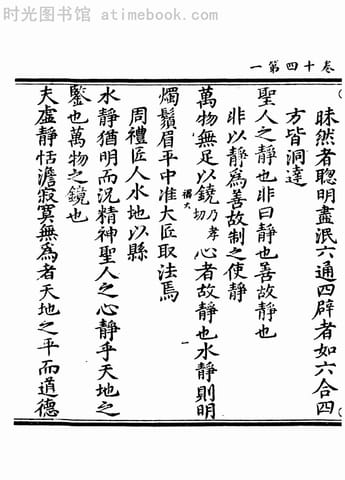 时光图书馆 — atimebook.com
卷十四第一
昧然者聰明盡泯六通四辟者如六合四
方皆洞達
聖人之靜也非曰靜也善故靜也
非以靜為善故制之使靜
萬物無足以鐃乃孝切心者故靜也水靜則明
燭鬚眉平中准大匠取法焉
周禮匠人水地以縣
水靜猶明而況精神聖人之心靜乎天地之
鑒也萬物之鏡也
夫虛靜恬澹寂寞無為者天地之平而道德